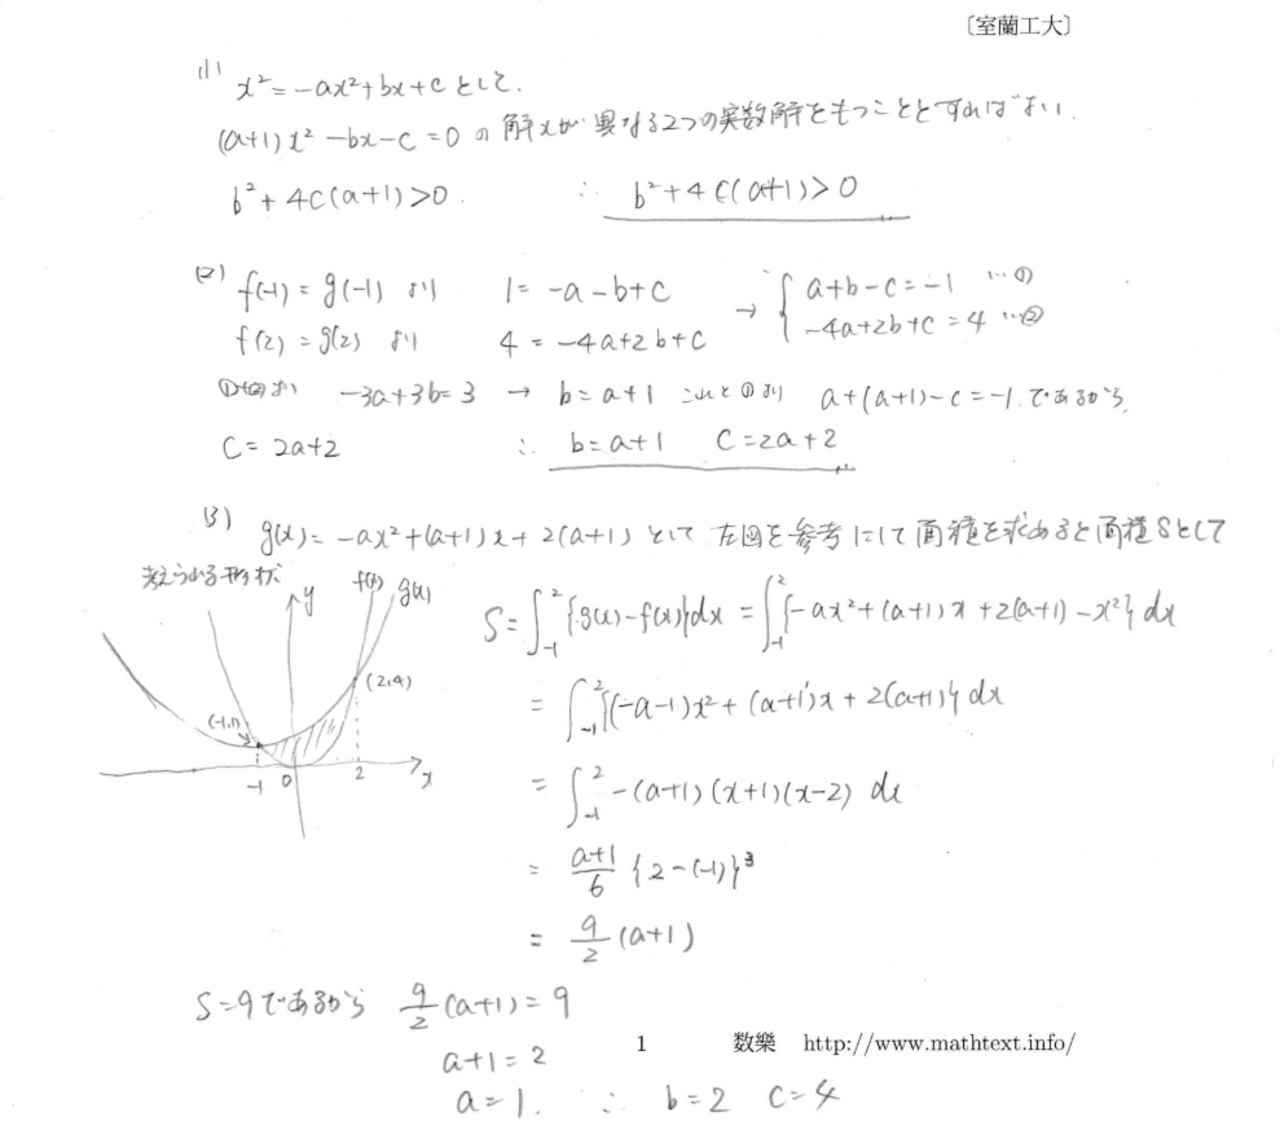 〔室蘭工大〕
(1)
x²=-ax²+bx+c として.
(a+1)x²-bx-c=0 の 解xが 異なる2つの実数解をもつこととすればよい.
b²+4c(a+1)>0. ∴ b²+4c(a+1)>0
(2) f(-1)=g(-1) より 1=-a-b+c → { a+b-c=-1 …①
f(2)=g(2) より 4=-4a+2b+c -4a+2b+c=4 …②
①+②より -3a+3b=3 → b=a+1 これと①より a+(a+1)-c=-1.であるから,
c=2a+2 ∴ b=a+1 c=2a+2
(3) g(x)=-ax²+(a+1)x+2(a+1) として 左図を参考にして面積を求めると面積Sとして
考えられる形状 y f(x) g(x)
S=∫₋₁²{g(x)-f(x)}dx=∫₋₁²{-ax²+(a+1)x+2(a+1)-x²}dx
(2,4)
=∫₋₁²{(-a-1)x²+(a+1)x+2(a+1)}dx
(-1,1)
-1 0 2 x
=∫₋₁² -(a+1)(x+1)(x-2) dx
=a+1/6 {2-(-1)}³
=9/2(a+1)
S=9であるから 9/2(a+1)=9
1 数樂 http://www.mathtext.info/
a+1=2
a=1. ∴ b=2 c=4